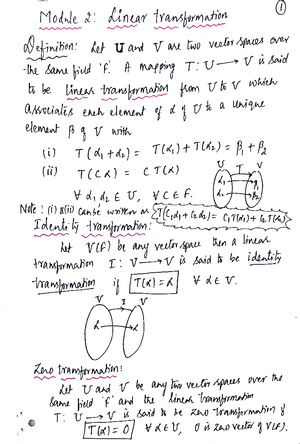 ①
Module 2: Linear transformation
Definition: Let U and V are two vector spaces over
the same field 'F'. A mapping T: U → V is said
to be linear transformation from U to V which
associates each element of α of U to a unique
element β of V with
(i) T(α₁+α₂) = T(α₁) + T(α₂) = β₁ + β₂
(ii) T(cα) = c T(α)
∀ α₁, α₂ ∈ U, ∀ c ∈ F.
U T V
α₁ β₁
α₂ β₂
Note: (i) & (ii) can be written as T(c₁α₁+c₂α₂) = c₁T(α₁)+c₂T(α₂)
Identity transformation:
Let V(F) be any vector space then a linear
transformation I: V → V is said to be identity
transformation if T(α) = α ∀ α ∈ V.
V I V
α α
Zero transformation:
Let U and V be any two vector spaces over the
same field 'F' and the linear transformation
T: U → V is said to be zero transformation if
T(α) = 0 ∀ α ∈ U, 0 is zero vector of V(F).